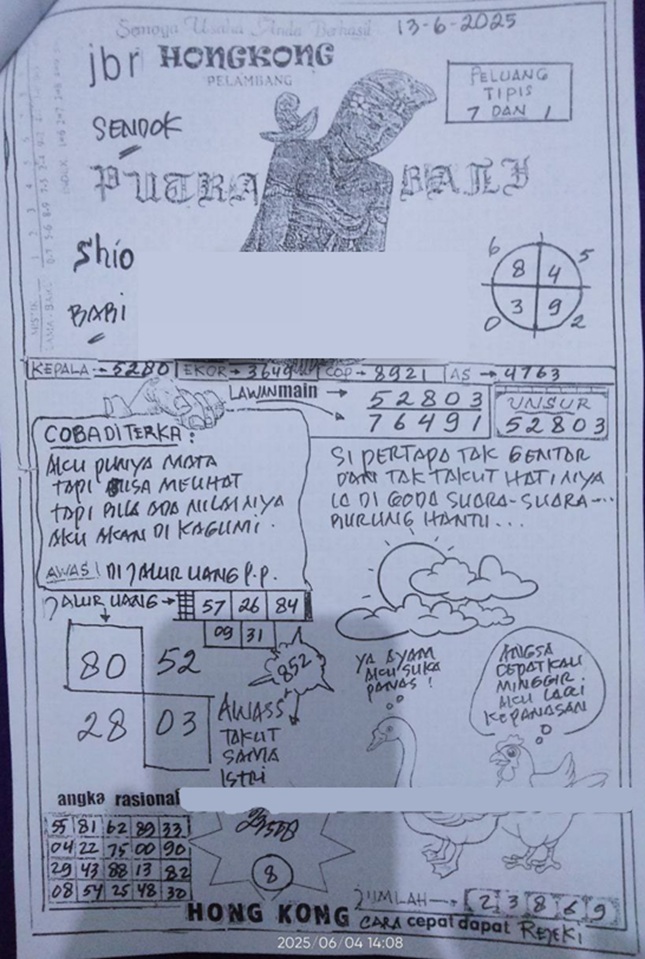 Semoga Usaha Anda Berhasil
13-6-2025
jbr HONGKONG
PELAMBANG
PELUANG
TIPIS
7 DAN 1
SENDOK
PUTRA BALI
Shio
BABI
6 5
8 4
3 9
0 2
KEPALA → 5280 EKOR → 3649 COP → 8921 AS → 4763
LAWAN main →
52803
76491
UNSUR
52803
COBA DITERKA:
AKU PUNYA MATA
TAPI BISA MELIHAT
TAPI BILA ADA NILAINYA
AKU AKAN DI KAGUMI.
AWAS! DI JALUR UANG P.P.
SI PERTAPA TAK GENTAR
DAN TAK TAKUT HATINYA
IA DI GODA SUARA-SUARA....
BURUNG HANTU...
JALUR UANG → 57 26 84
09 31
80 52
28 03
852
AWASS
TAKUT
SAMA
ISTRI
YA AYAM
AKU SUKA
PANAS!
ANGSA
CEPAT KAU
MINGGIR.
AKU LAGI
KEPANASAN
angka rasional
55 81 62 89 33
04 22 75 00 90
29 43 88 13 82
08 54 25 48 30
8
JUMLAH → 2 3 8 6 9
HONG KONG CARA cepat dapat REJEKI
2025/06/04 14:08